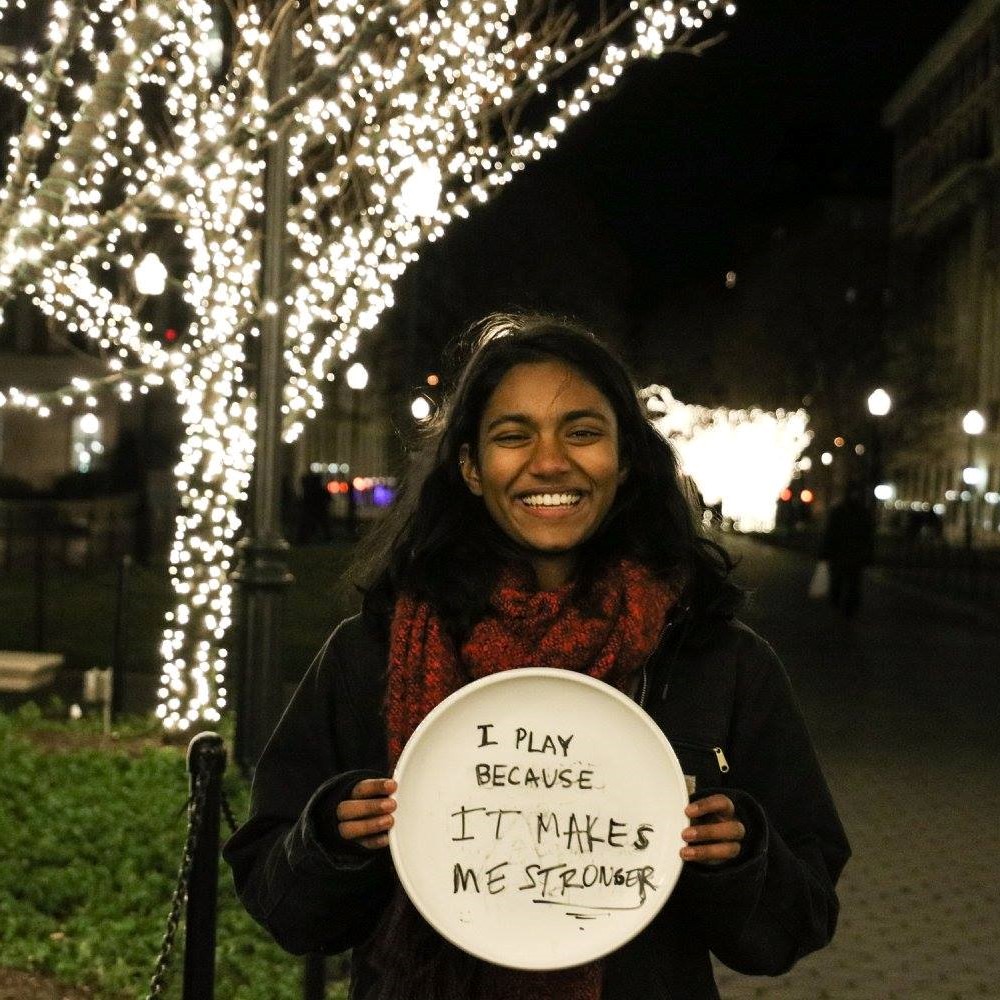 I PLAY
BECAUSE
IT MAKES
ME STRONGER